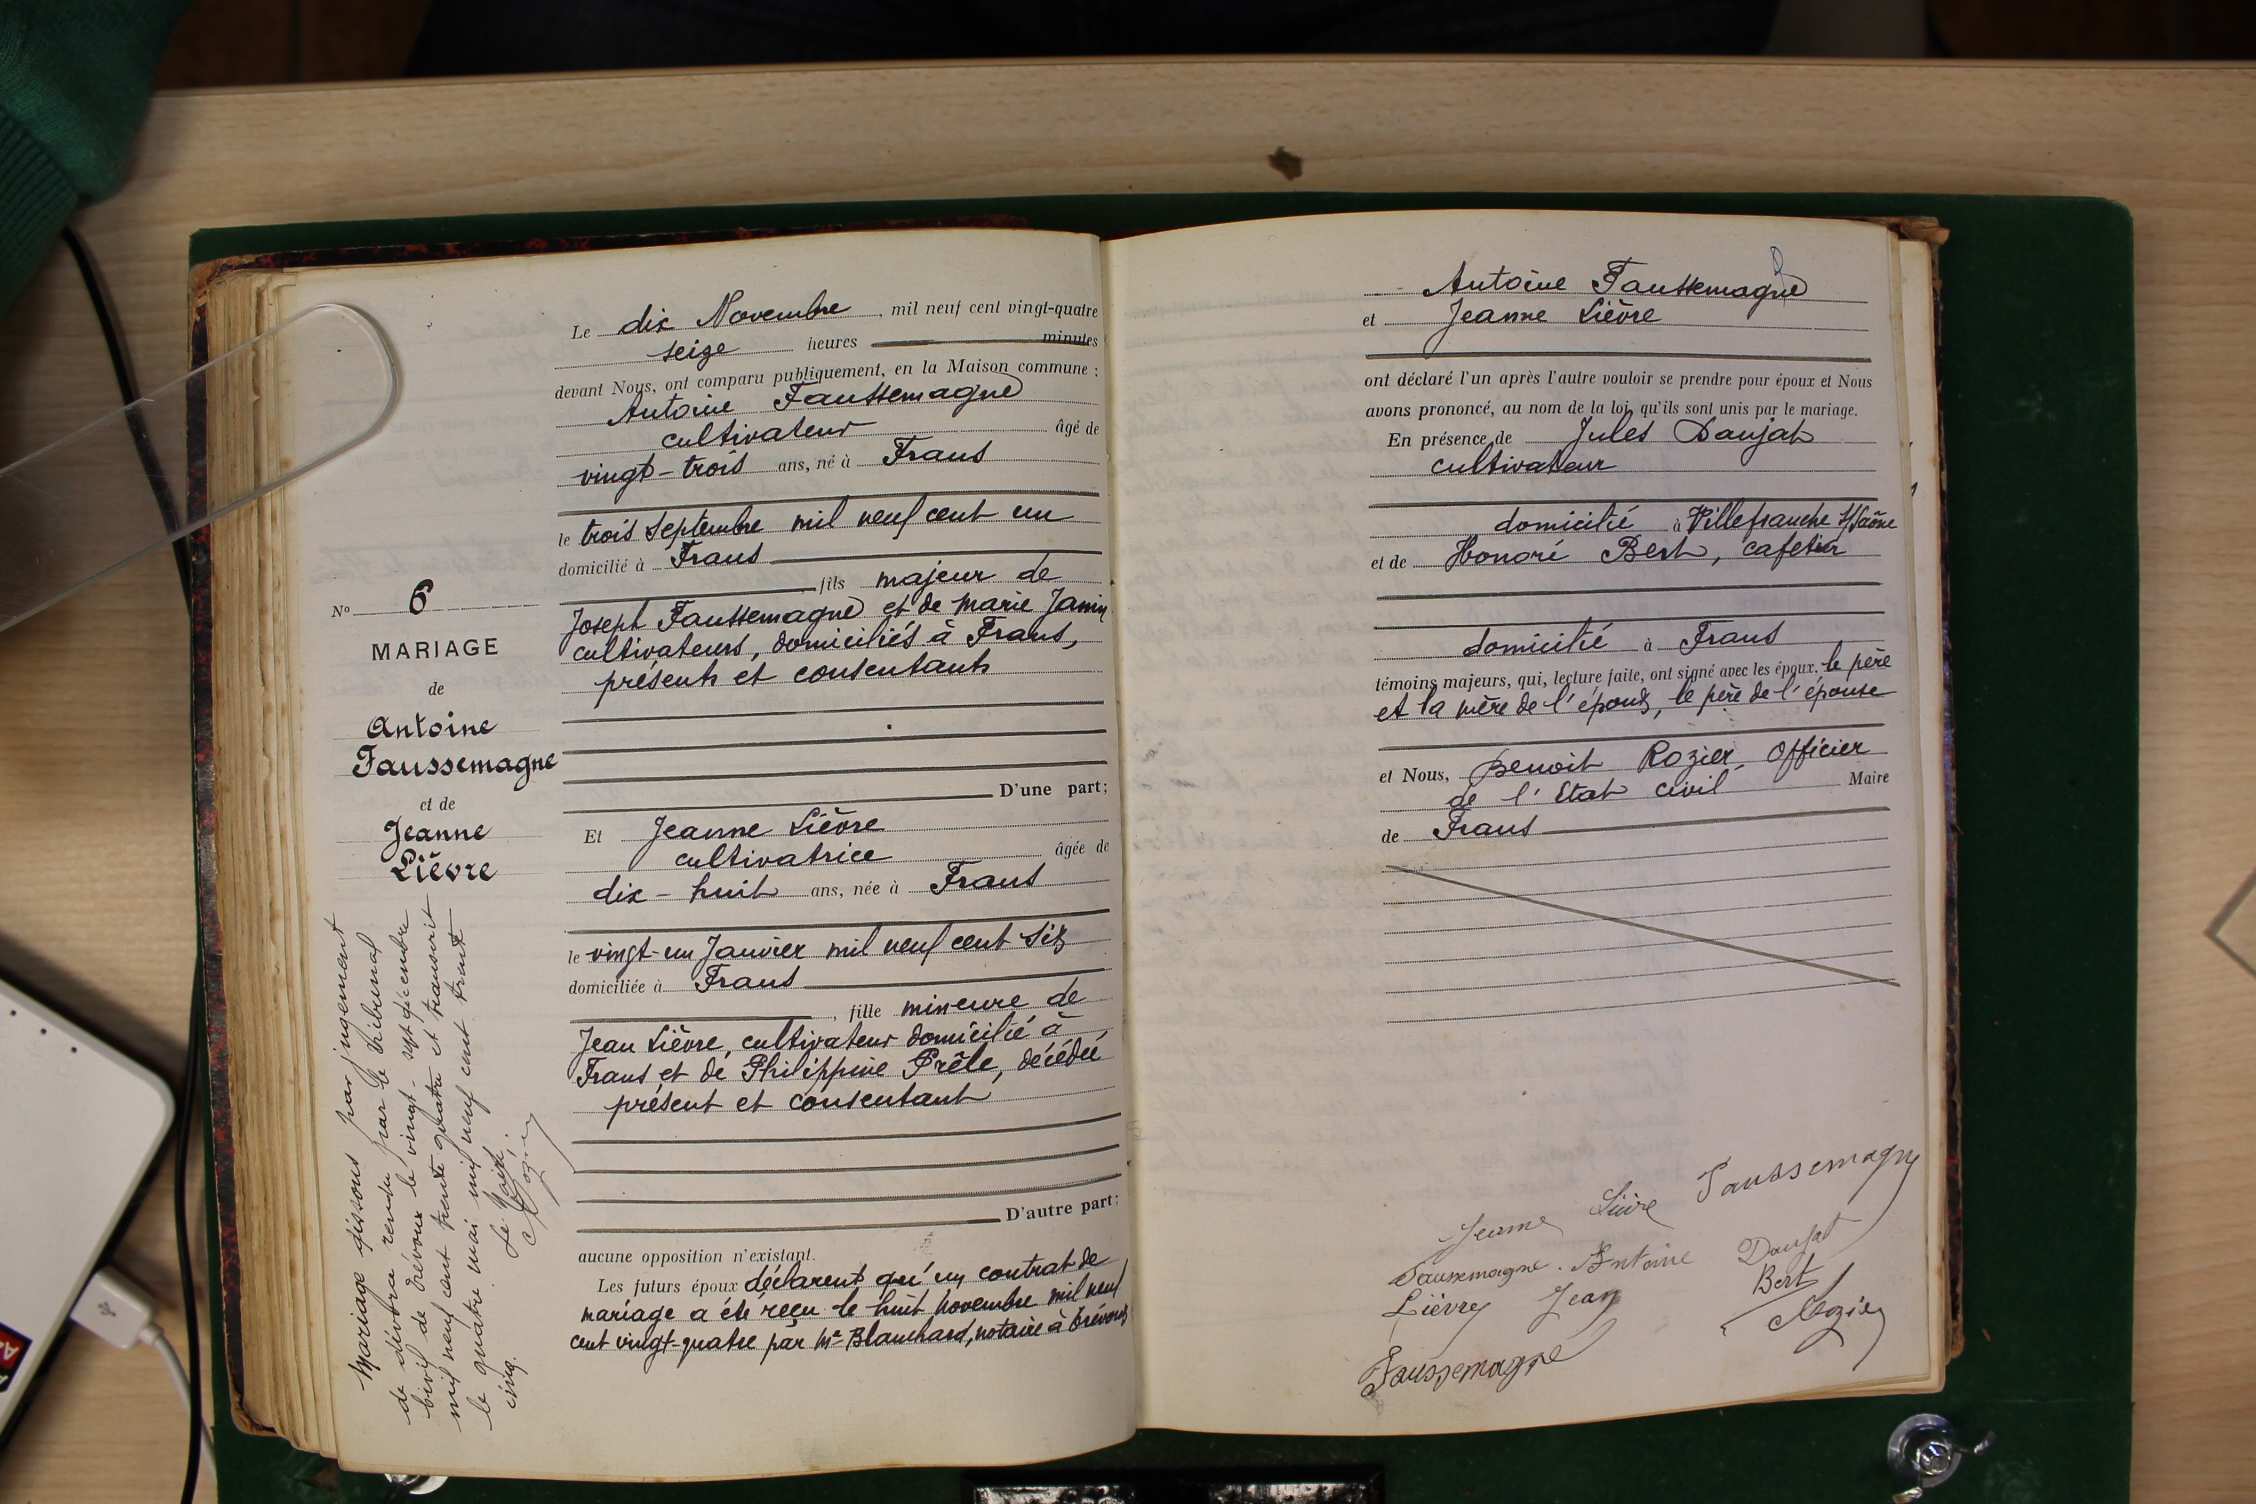 N° 6
MARIAGE
de
Antoine
Faussemagne
et de
Jeanne
Lièvre
Mariage dissous par jugement
de divorce rendu par le tribunal
civil de Trévoux le vingt-sept décembre
mil neuf cent trente quatre et transcrit
le quatre mai mil neuf cent trente
cinq.
Le Maire:
Rozier
Le dix Novembre, mil neuf cent vingt-quatre
seize heures minutes
devant Nous, ont comparu publiquement, en la Maison commune :
Antoine Faussemagne
cultivateur âgé de
vingt-trois ans, né à Frans
le trois Septembre mil neuf cent un
domicilié à Frans
fils majeur de
Joseph Faussemagne et de Marie Janin
cultivateurs, domiciliés à Frans,
présents et consentants
D'une part;
Et Jeanne Lièvre
cultivatrice âgée de
dix-huit ans, née à Frans
le vingt-un Janvier mil neuf cent six
domiciliée à Frans
, fille mineure de
Jean Lièvre, cultivateur domicilié à
Frans et de Philippine Prêle, décédée,
présent et consentant
D'autre part;
aucune opposition n'existant.
Les futurs époux déclarent qu'un contrat de
mariage a été reçu le huit novembre mil neuf
cent vingt-quatre par Me Blanchard, notaire à Trévoux
Antoine Faussemagne
et Jeanne Lièvre
ont déclaré l'un après l'autre vouloir se prendre pour époux et Nous
avons prononcé, au nom de la loi, qu'ils sont unis par le mariage.
En présence de Jules Daujat
cultivateur
domicilié à Villefranche s/Saône
et de Honoré Bert, cafetier
domicilié à Frans
témoins majeurs, qui, lecture faite, ont signé avec les époux, le père
et la mère de l'époux, le père de l'épouse
et Nous, Benoit Rozier, Officier
de l'Etat civil Maire
de Frans
Jeanne Lièvre Faussemagne
Faussemagne Antoine Daujat
Lièvre Jean Bert
Rozier
Faussemagne